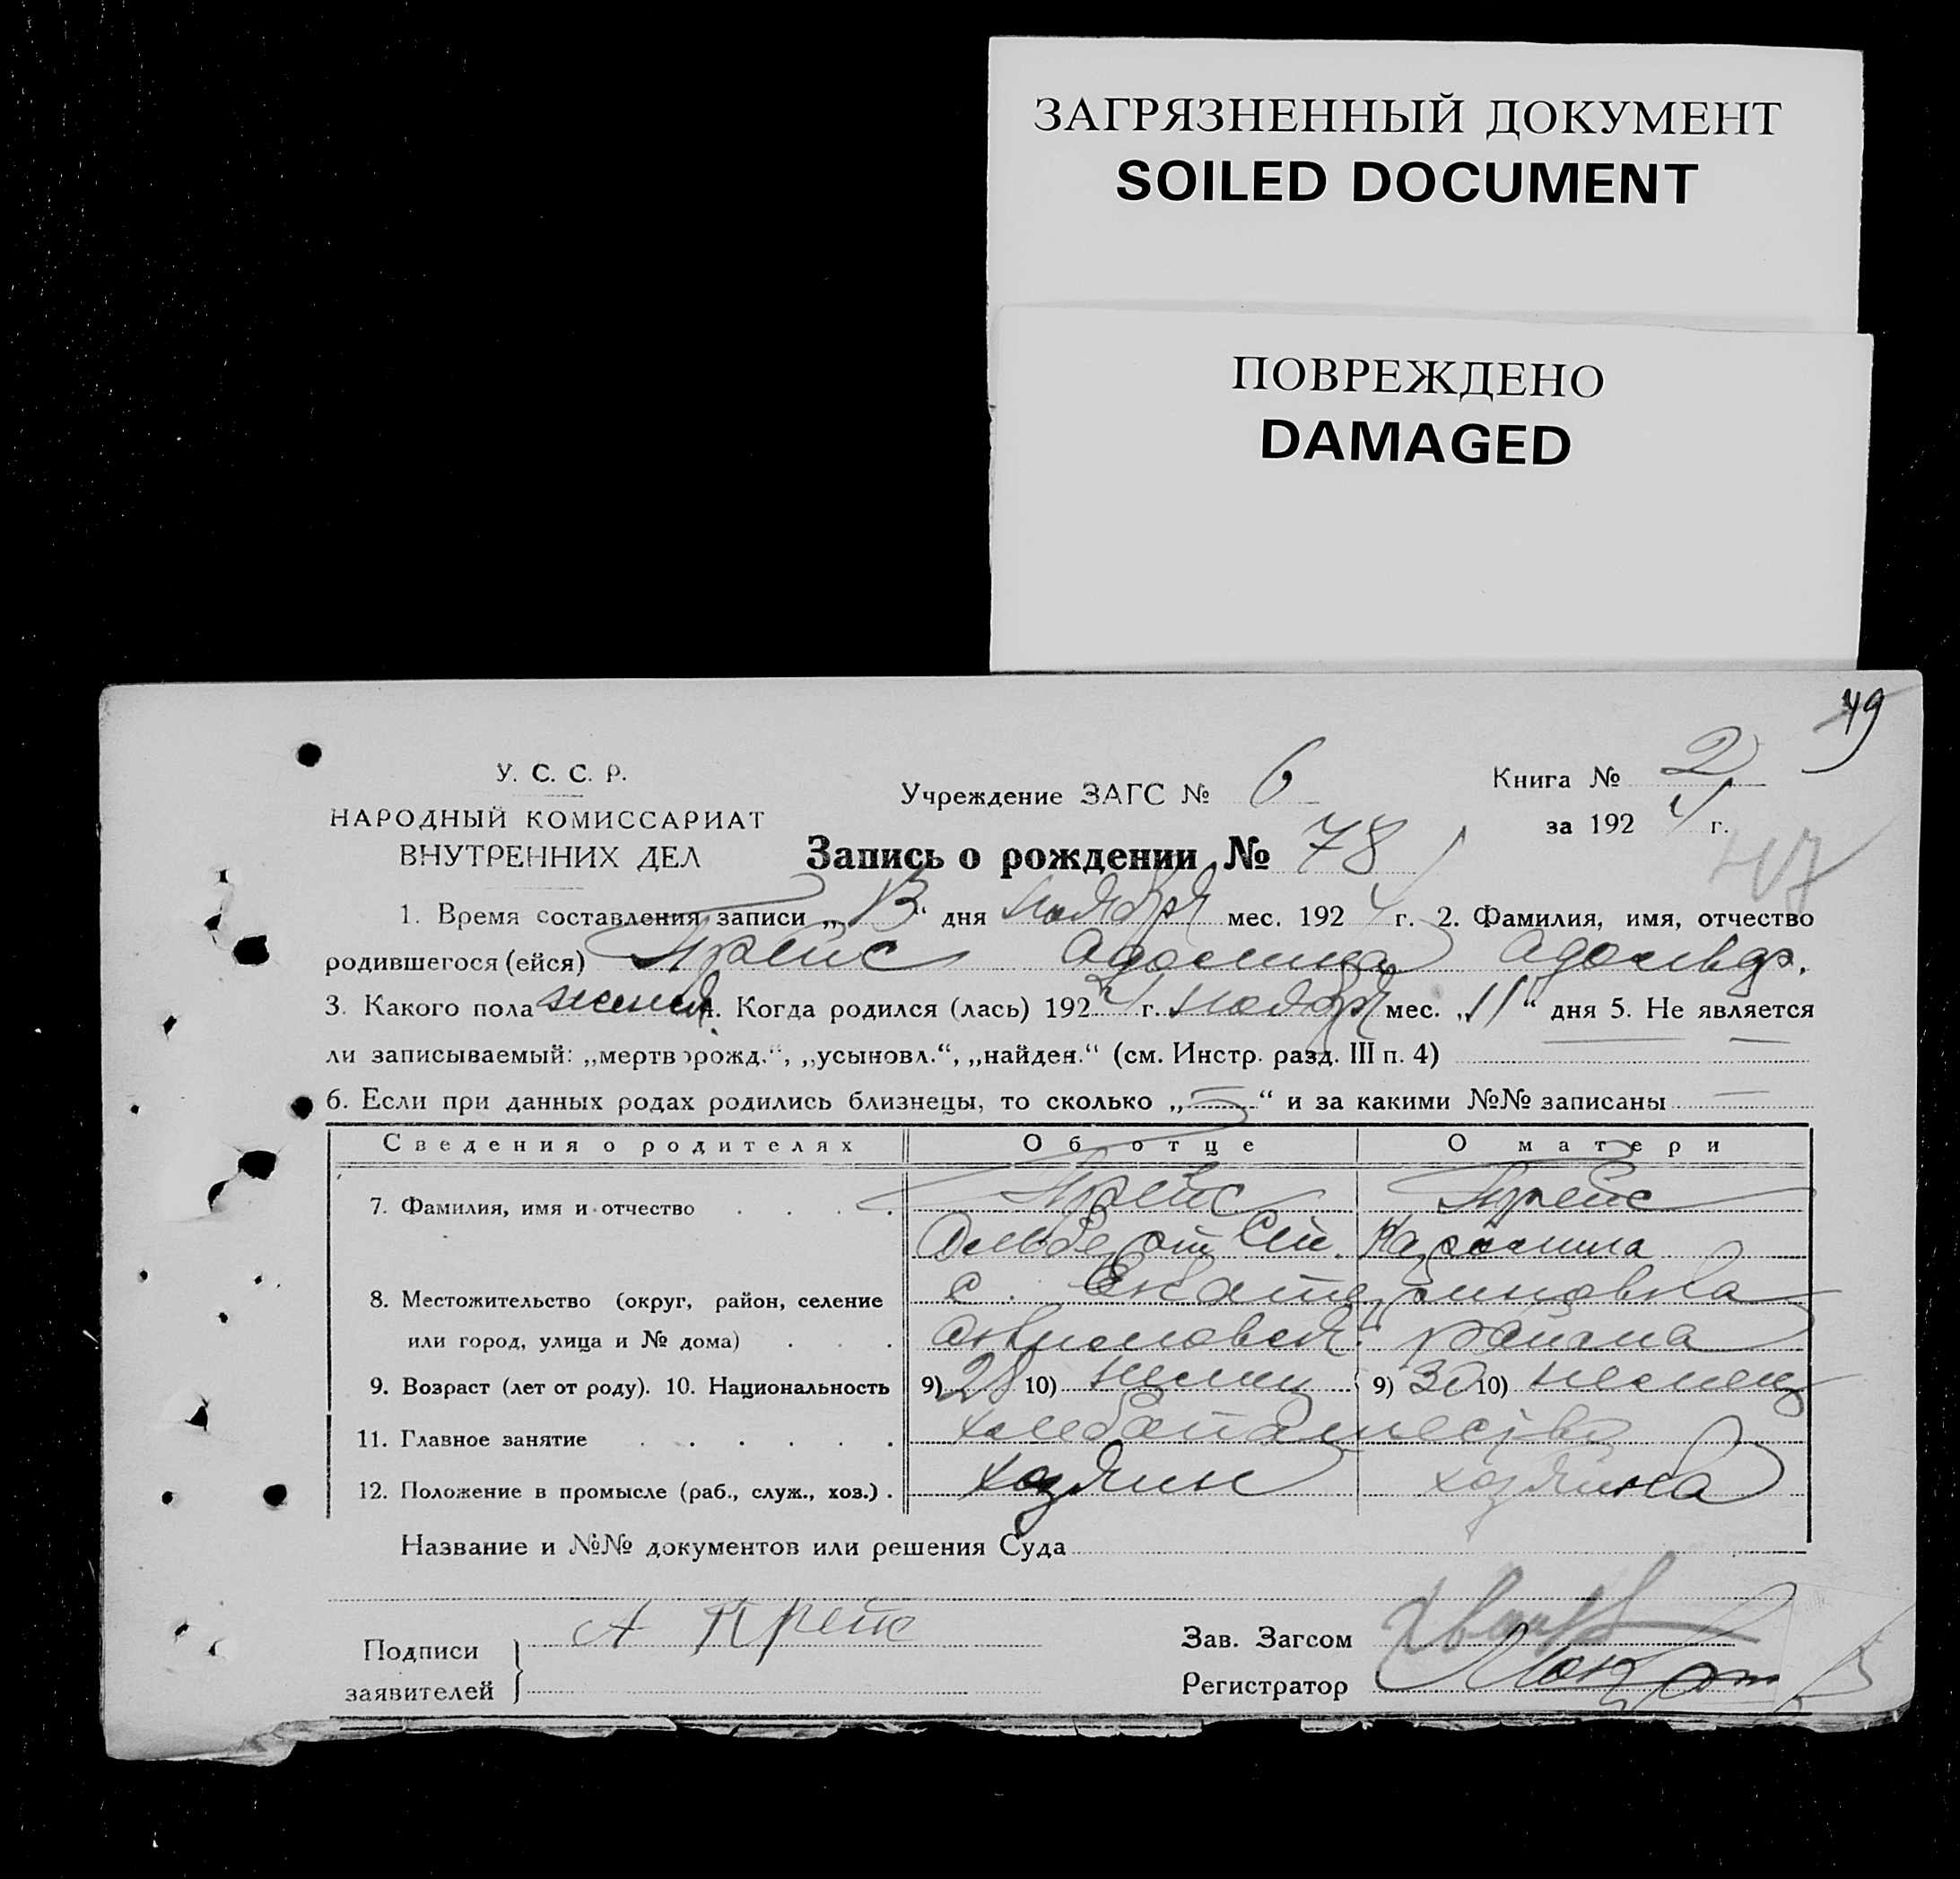 ЗАГРЯЗНЕННЫЙ ДОКУМЕНТ
SOILED DOCUMENT
ПОВРЕЖДЕНО
DAMAGED
49
У. С. С. Р.
НАРОДНЫЙ КОМИССАРИАТ
ВНУТРЕННИХ ДЕЛ
Учреждение ЗАГС № 6
Книга № 2
за 1924 г.
Запись о рождении № 78
1. Время составления записи „13“ дня ноября мес. 1924 г. 2. Фамилия, имя, отчество
родившегося (ейся) Прейс Адольвф.
3. Какого пола женск 4. Когда родился (лась) 1924 г. ноября мес. „11“ дня 5. Не является
ли записываемый: „мертворожд.“, „усыновл.“, „найден.“ (см. Инстр. разд. III п. 4) —
6. Если при данных родах родились близнецы, то сколько „—“ и за какими №№ записаны —
Сведения о родителях Об отце О матери
7. Фамилия, имя и отчество Прейс Прейс
Каролина
8. Местожительство (округ, район, селение с. Екатериновка
или город, улица и № дома) района
9. Возраст (лет от роду). 10. Национальность 9) 28 10) немец 9) 30 10) немец
11. Главное занятие хлебопашество
12. Положение в промысле (раб., служ., хоз.) хозяин хозяйка
Название и №№ документов или решения Суда
Подписи заявителей А Прейс
Зав. Загсом
Регистратор